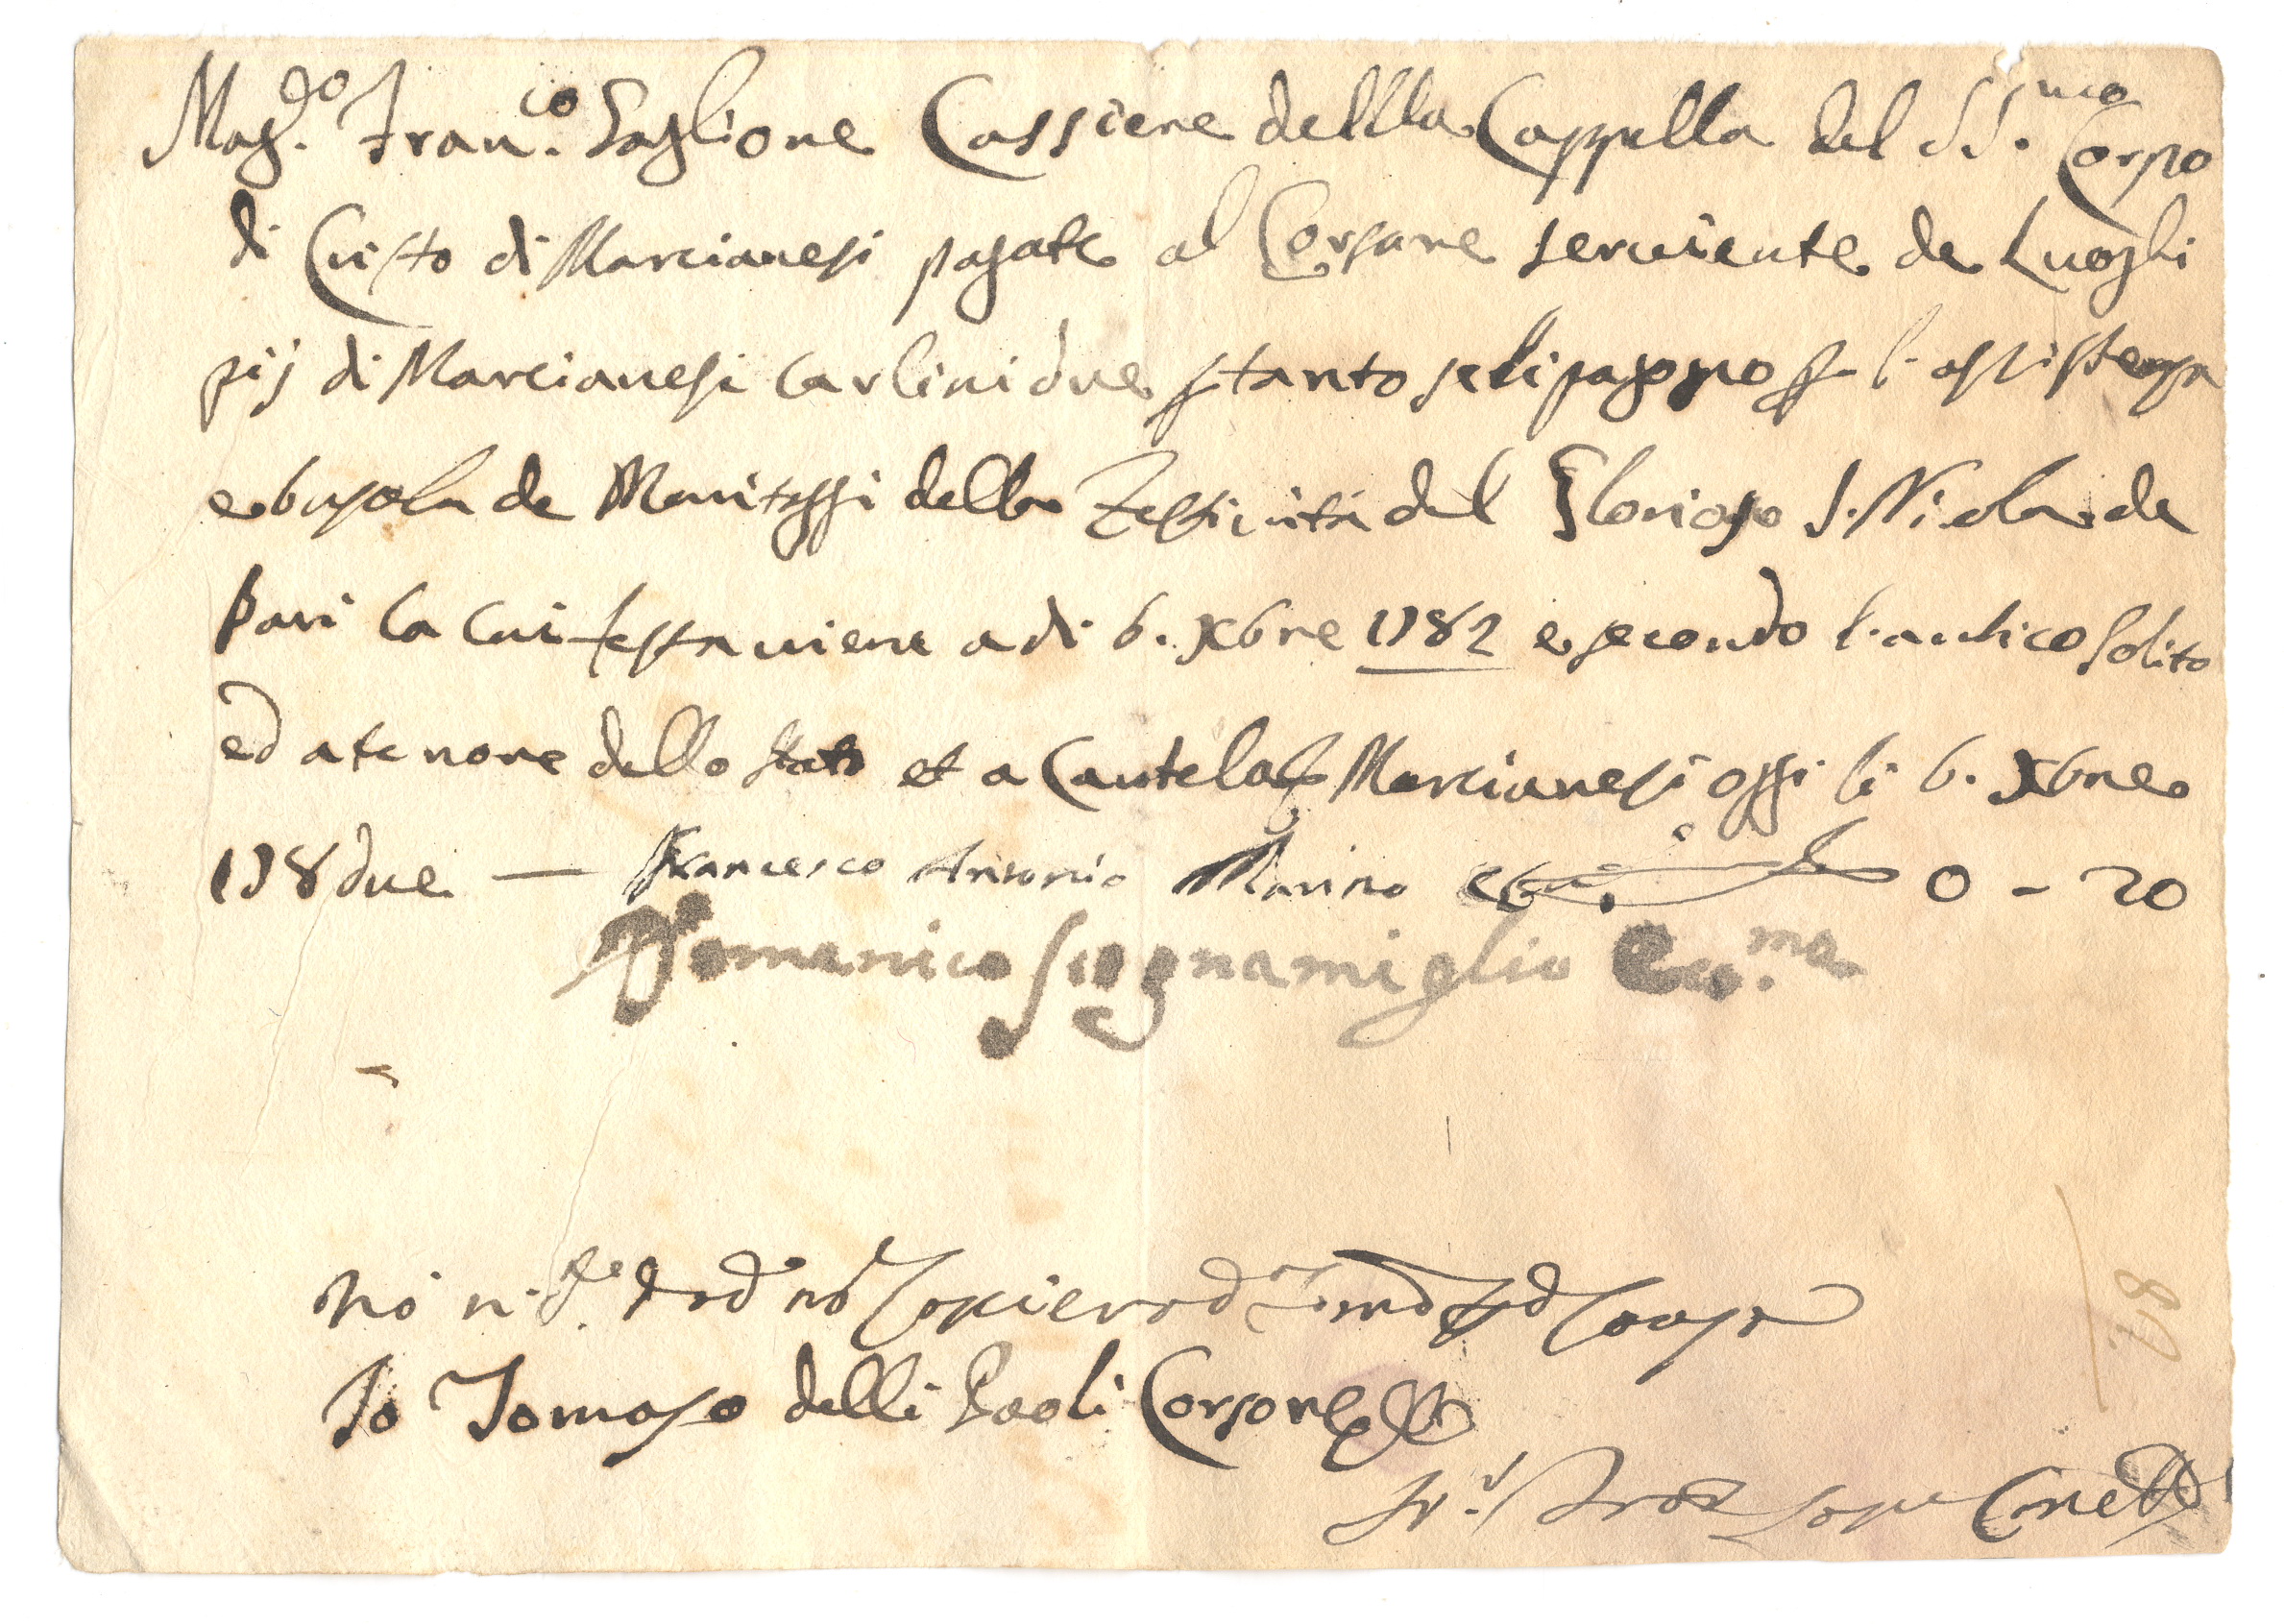 Mag.co Fran.co Saglione Cassiere dellla Cappella del SS.mo Corpo
di Cristo di Marcianesi pagate al Corsare serviente de Luoghi
pij di Marcianesi Carlini due p tanto se li pagano p l'assistenza
e busola de Maritaggi della Festività del Glorioso S. Nicola de
Bari la cui festa viene a di 6. Xbre 1782 e secondo l'antico solito
ed a tenore dello Stato et a Cautela p Marcianesi oggi li 6. Xbre
178due — Francesco Antonio Marino 0 - 20
Domenico Scognamiglio Eco.mo
Io Tomaso delli Paoli Corsore
87